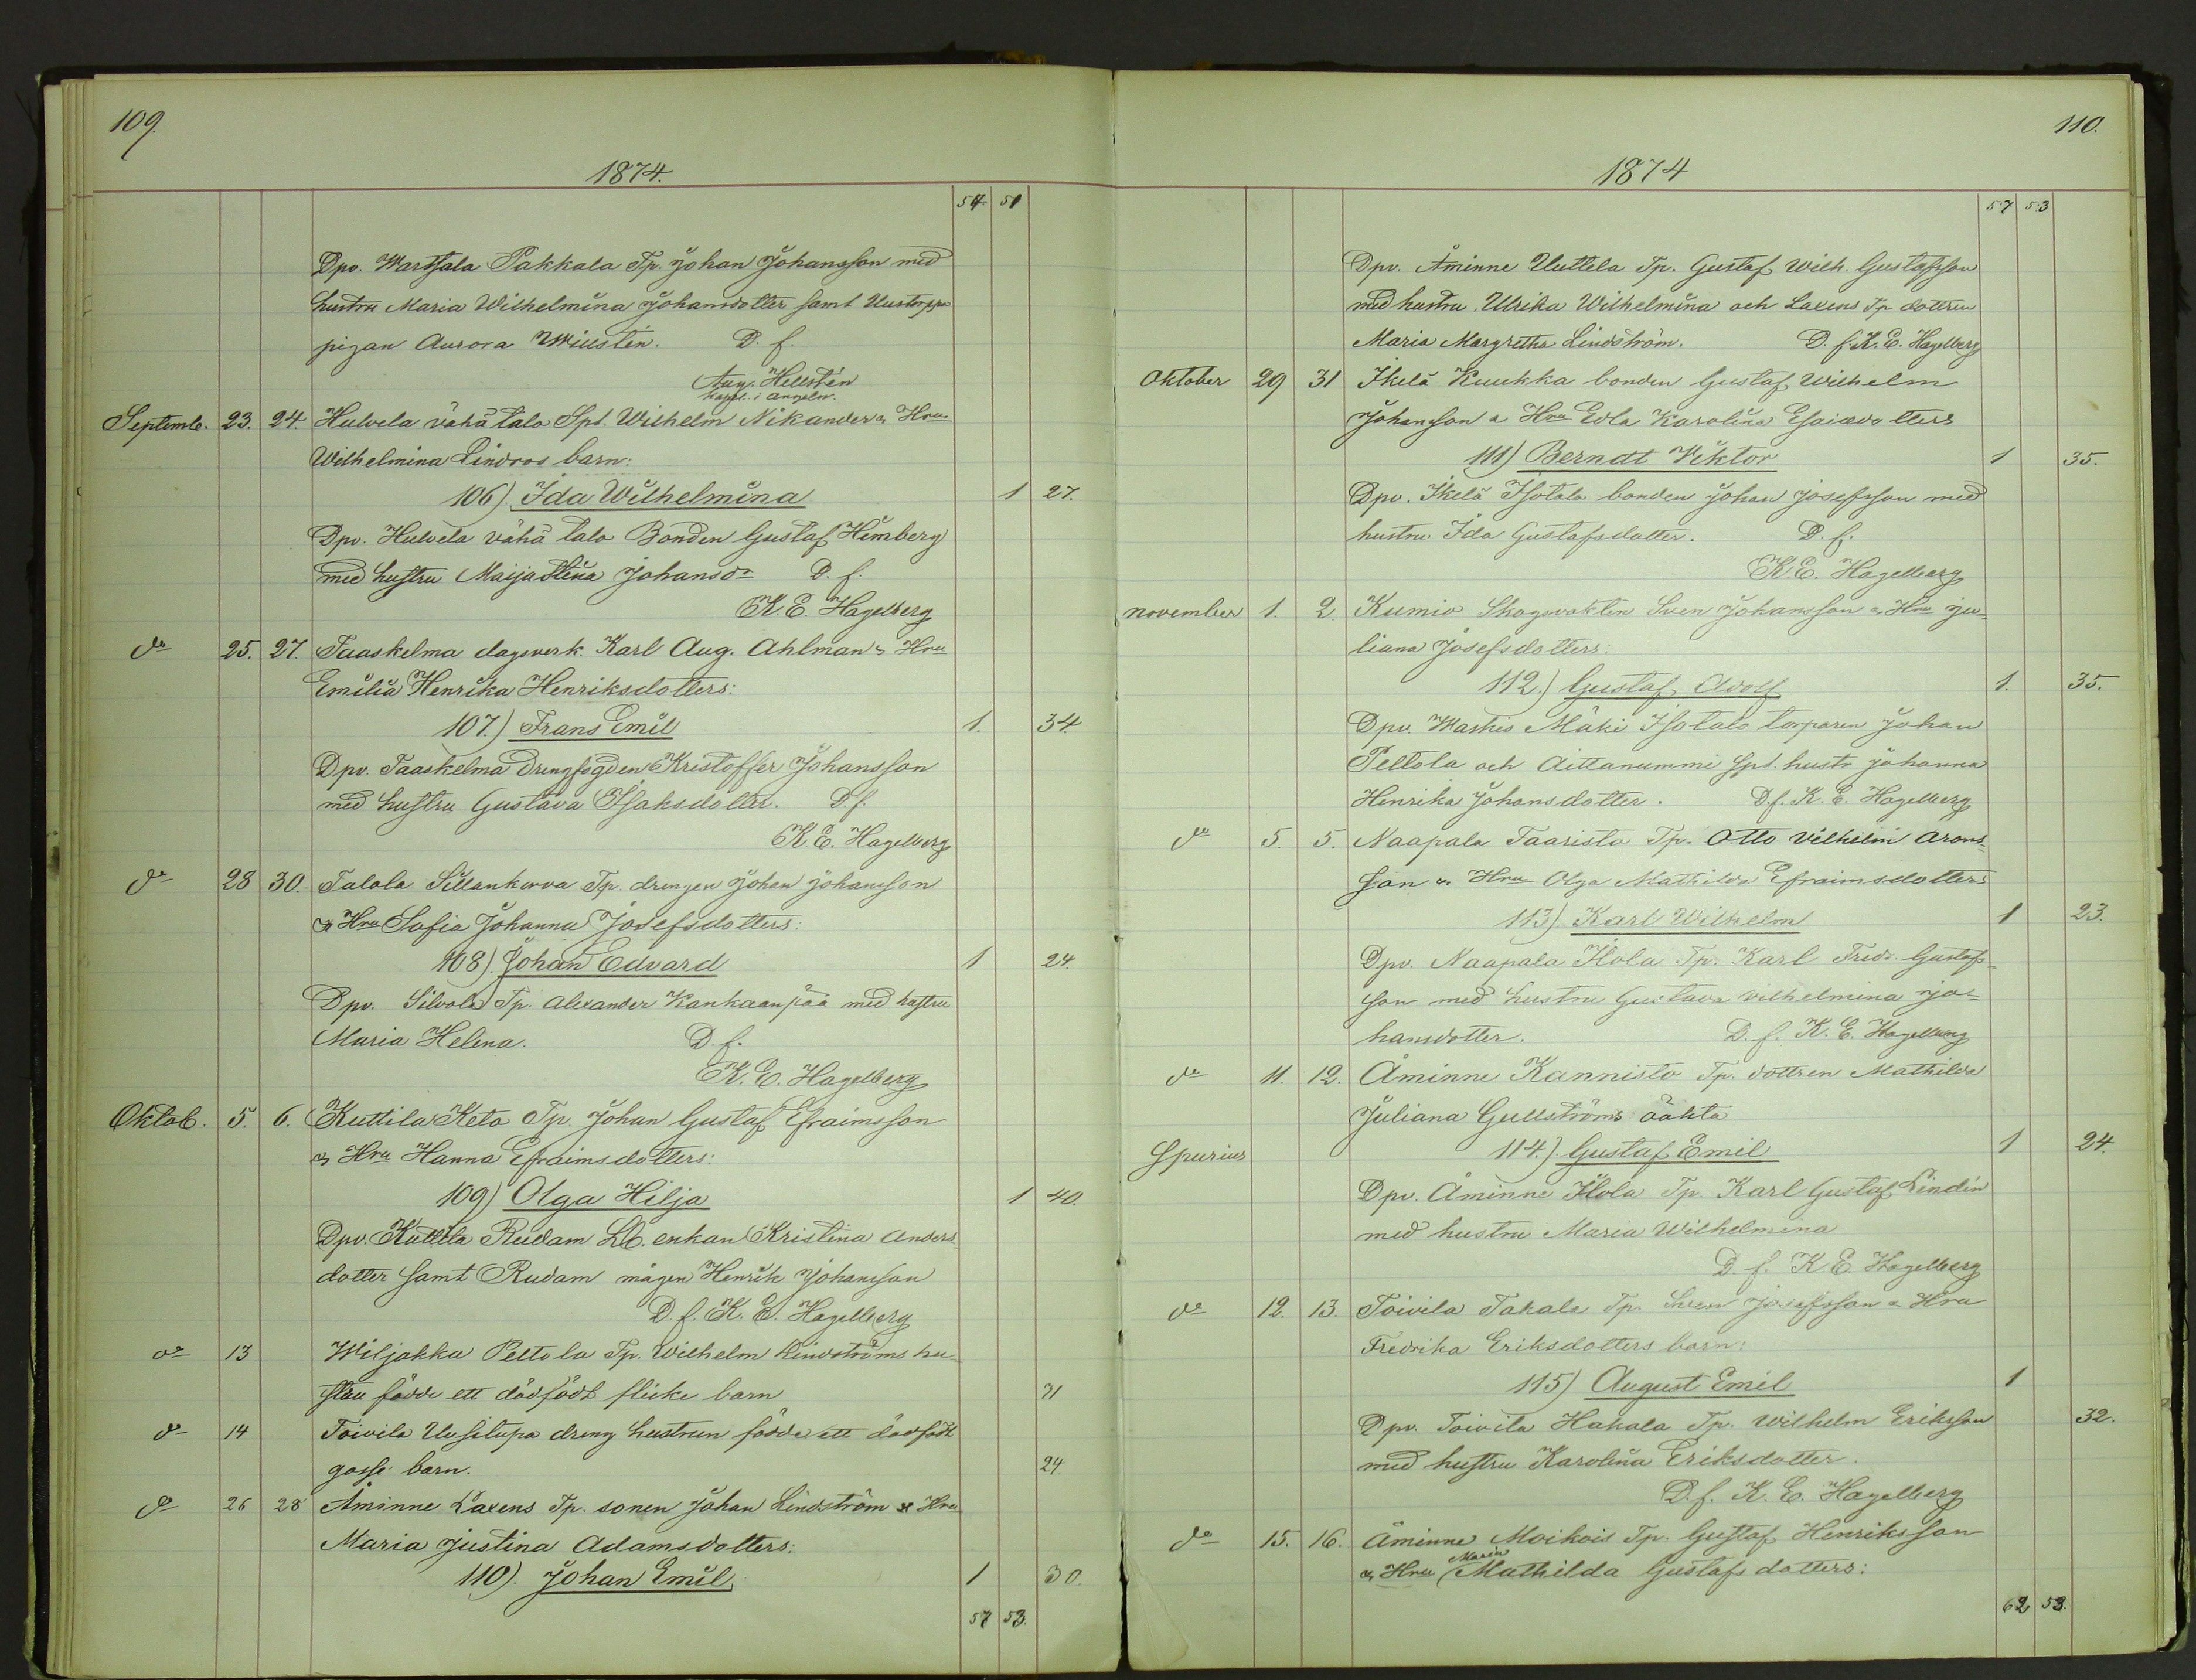 109.
1874.
54 51
Dpv. Wartsala Pakkala Tp. Johan Johansson med
hustru Maria Wilhelmina Johansdotter samt
pigan Aurora Willstén. D. f.
Aug. Hellstén
kappl. i Angeln.
Septemb. 23. 24. Hulvela vähä talo Spt. Wilhelm Nikander & Hru
Wilhelmina Lindroos barn:
106). Ida Wilhelmina 1 27.
Dpv. Hulvela vähä talo Bonden Gustaf Himberg
med hustru Maija Stina Johansdr D. f.
K. E. Hagelberg
do 25. 27. Taaskelma dagsverk. Karl Aug. Ahlman & Hru
Emilia Henrika Henriksdotters:
107.) Frans Emil 1. 34.
Dpv. Taaskelma Drengfogden Kristoffer Johansson
med hustru Gustava Isaksdotter. D. f.
K. E. Hagelberg
do 28 30. Talola Sillankorva Tp. drengen Johan Johansson
& Hru Sofia Johanna Josefsdotters:
108). Johan Edvard 1 24.
Dpv. Silvola Tp. Alexander Kankaanpää med hustru
Maria Helena. D. f.
K. E. Hagelberg
Oktob. 5. 6. Kuttila Keto Tp. Johan Gustaf Efraimsson
& Hru Hanna Efraimsdotters:
109) Olga Hilja 1 40.
Dpv. Kuttila Rudam enkan Kristina Anders-
dotter samt Rudam mågen Henrik Johansson
D. f. K. E. Hagelberg
do 13 Wiljakka Peltola Tp. Wilhelm Lindströms hu-
stru födde ett dödfödt flicke barn 31
do 14 Toivila Uusitupa dreng hustrun födde ett dödfödt
gosse barn. 24
do 26 28 Åminne Laxens Tp. sonen Johan Lindström & Hru
Maria Justina Adamsdotters:
110). Johan Emil 1 30.
57 53.
110.
1874
57 53
Dpv. Åminne Uuttela Tp. Gustaf Wilh. Gustafsson
med hustru Ulrika Wilhelmina och Laxens Tp dottren
Maria Margretha Lindström. D. f. K. E. Hagelberg
Oktober 29 31 Ikelä Kuukka bonden Gustaf Wilhelm
Johansson & Hru Edla Karolina Esaiædotters
111) Berndt Viktor 1 35.
Dpv. Ikelä Isotalo bonden Johan Josefsson med
hustru Ida Gustafsdotter. D. f.
K. E. Hagelberg
November 1. 2. Kumio Skogsvakten Sven Johansson & Hru Ju-
liana Josefsdotters:
112.) Gustaf Adolf 1. 35.
Dpv. Waskis Mäki Isotalo torparen Johan
Peltola och Aittanummi Spt. hustr Johanna
Henrika Johansdotter. D. f. K. E. Hagelberg
do 5. 5. Naapala Taaristo Tp. Otto Vilhelm Arons-
son & Hru Olga Mathilda Efraimsdotters
113). Karl Wilhelm 1 23.
Dpv. Naapala Ilola Tp. Karl Fredr. Gustafs-
son med hustru Gustava Vilhelmina Jo-
hansdotter. D. f. K. E. Hagelberg
do 11. 12. Åminne Kannisto Tp. dottren Mathilda
Juliana Gullströms oäkta
Spurius 114.) Gustaf Emil 1 24.
Dpv. Åminne Ilola Tp. Karl Gustaf Lindén
med hustru Maria Wilhelmina
D. f. K. E. Hagelberg
do 12. 13. Toivila Takala Tp. Sven Josefsson & Hru
Fredrika Eriksdotters barn:
115) August Emil 1
Dpv. Toivila Hakala Tp. Wilhelm Eriksson 32.
med hustru Karolina Eriksdotter.
D. f. K. E. Hagelberg
do 15. 16. Åminne Moikois Tp. Gustaf Henriksson
& Hru Maria Mathilda Gustafsdotters:
62 53.